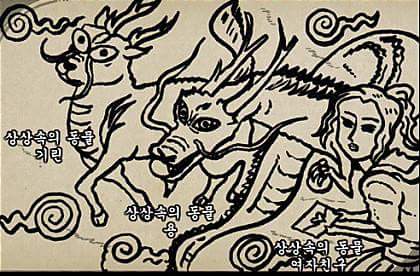 상상속의 동물
기린
상상속의 동물
용
상상속의 동물
여자친구